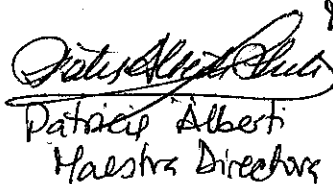 Patricia Alberti
Maestra Directora